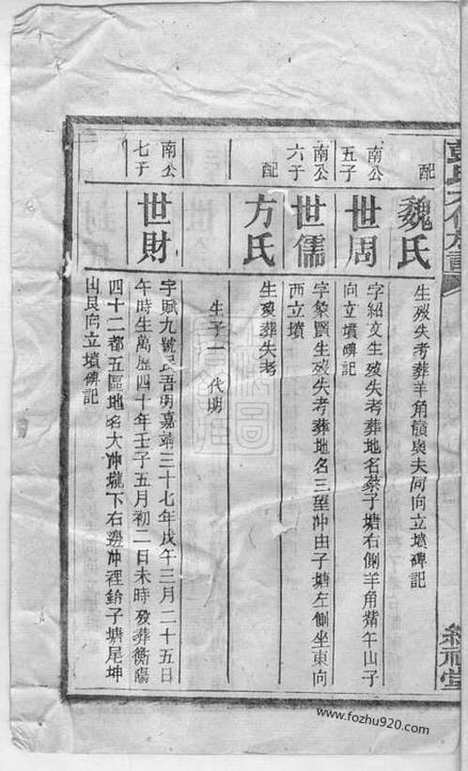 配
魏氏
生歿失考葬羊角嶺與夫同向立墳碑記
南公
五子
世周
字紹文生歿失考葬地名蔡子塘右側羊角觜午山子
向立墳碑記
南公
六子
世儒
生歿失考葬地名三望冲由子塘左側坐東向
西立墳
配
方氏
生歿葬失考
生子一 代明
南公
七子
世財
字賦九號民吾明嘉靖三十七年戊午三月二十五日
午時生萬歷四十年壬子五月初二日未時歿葬衡陽
四十二都五區地名大冲壠下右邊冲裡 子塘尾坤
山艮向立墳碑記
www.fozhu920.com